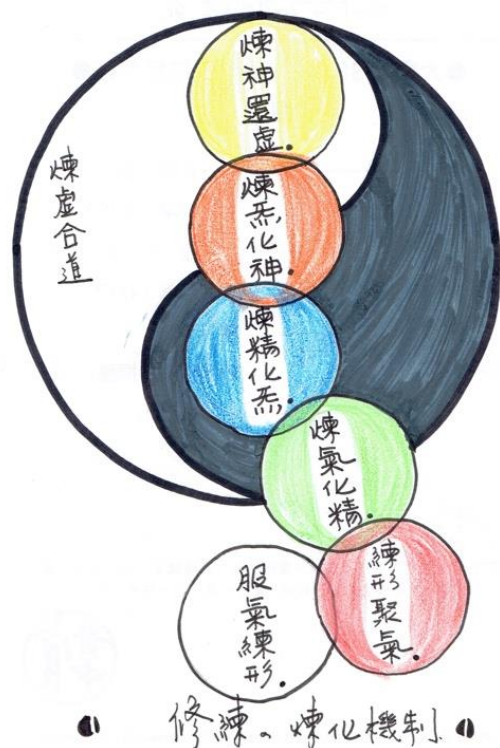 煉神還虛.
煉虛合道
煉炁化神.
煉精化炁.
煉氣化精.
練形聚氣.
服氣練形.
修練。煉化機制.